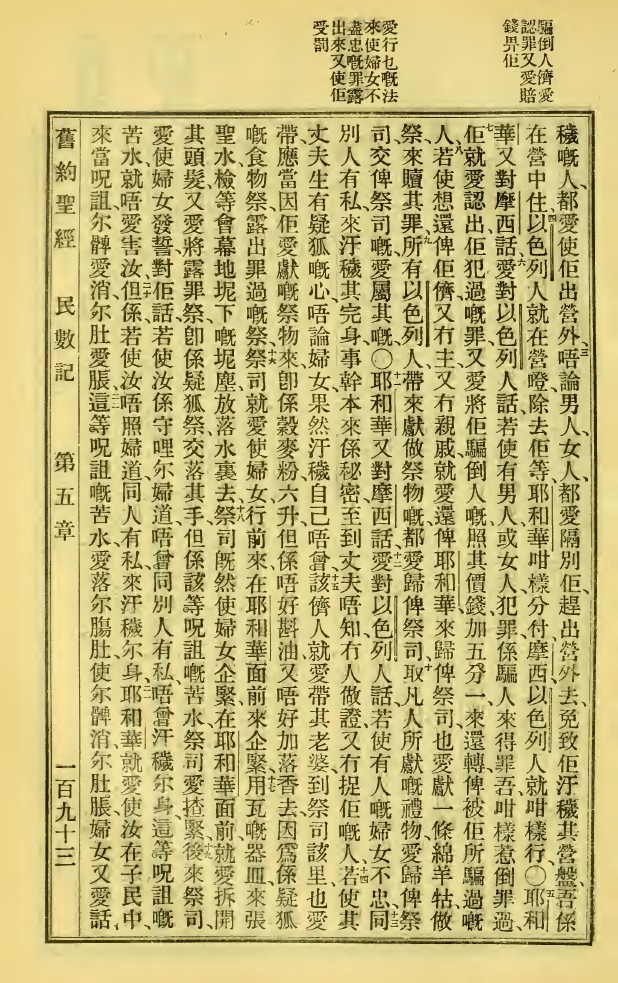 騙倒人儕愛
認罪又愛賠
錢畀佢
愛行乜嘅法
來使婦女不
盡忠嘅罪露
出來又使佢
受罰
穢嘅人、都愛使佢出營外、三唔論男人女人、都愛隔別佢、趕出營外去、免致佢汙穢其營盤、吾係
在營中住、四以色列人就在營噔、除去佢等、耶和華咁樣分付摩西、以色列人就咁樣行、〇五耶和
華又對摩西話、六愛對以色列人話、若使有男人或女人犯罪、係騙人來得罪吾、咁樣惹倒罪過、
七佢就愛認出佢犯過嘅罪、又愛將佢騙倒人嘅、照其價錢加五分一、來還轉俾被佢所騙過嘅
人、八若使想還俾佢儕又冇主、又冇親戚、就愛還俾耶和華、來歸俾祭司、也愛獻一條綿羊牯做
祭、來贖其罪、九所有以色列人、帶來獻做祭物嘅、都愛歸俾祭司、十取凡人所獻嘅禮物、愛歸俾祭
司、交俾祭司嘅愛屬其嘅、〇十一耶和華又對摩西話、十二愛對以色列人話、若使有人嘅婦女不忠、十三同
別人有私、來汙穢其完身、事幹本來係秘密、至到丈夫唔知、冇人做證、又冇捉佢嘅人、十四若使其
丈夫生有疑狐嘅心、唔論婦女果然汙穢自己、唔曾、十五該儕人就愛帶其老婆到祭司該里、也愛
帶應當因佢愛獻嘅祭物來、即係穀麥粉六升、但係唔好斟油、又唔好加落香去、因爲係疑狐
嘅食物祭、露出罪過嘅祭、十六祭司就愛使婦女行前來、在耶和華面前來企緊、十七用瓦嘅器皿、來張
聖水、檢等會幕地坭下嘅坭塵、放落水裏去、十八祭司旣然使婦女企緊在耶和華面前、就愛拆開
其頭髮、又愛將露罪祭、卽係疑狐祭、交落其手、但係該等呪詛嘅苦水、祭司愛揸緊、十九後來祭司、
愛使婦女發誓、對佢話、若使汝係守哩尔婦道、唔曾同別人有私、唔曾汙穢尔身、這等呪詛嘅
苦水、就唔愛害汝、二十但係若使汝唔照婦道、同人有私、來汙穢尔身、二一耶和華就愛使汝在子民中、
來當呪詛、尔髀愛消、尔肚愛脹、二二這等呪詛嘅苦水、愛落尔腸肚、使尔髀消、尔肚脹、婦女又愛話、
舊約聖經　民數記　第五章　一百九十三